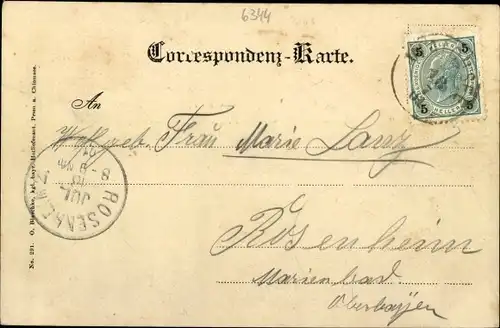 6344
Correspondenz-Karte.
An
Wohlgeb. Frau Marie Lanz
Rosenheim
Marienbad
Oberbayern
5 5
5 5
HELLER
ROSENHEIM
8
JUL
No. 291. O. Blaschke, kgl. bayr. Hoflieferant, Prien a. Chiemsee.